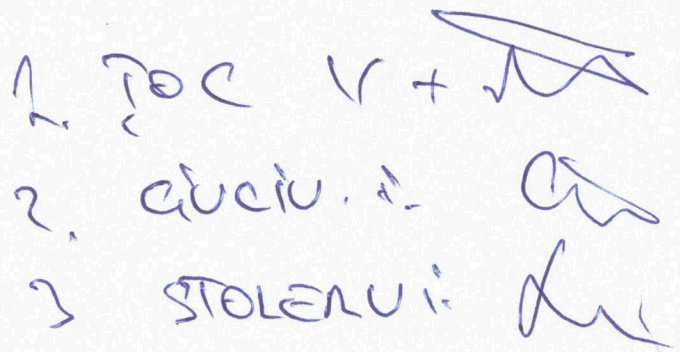 1. ȚOC V +
2. CIUCIU. I.
3 STOLERU I.